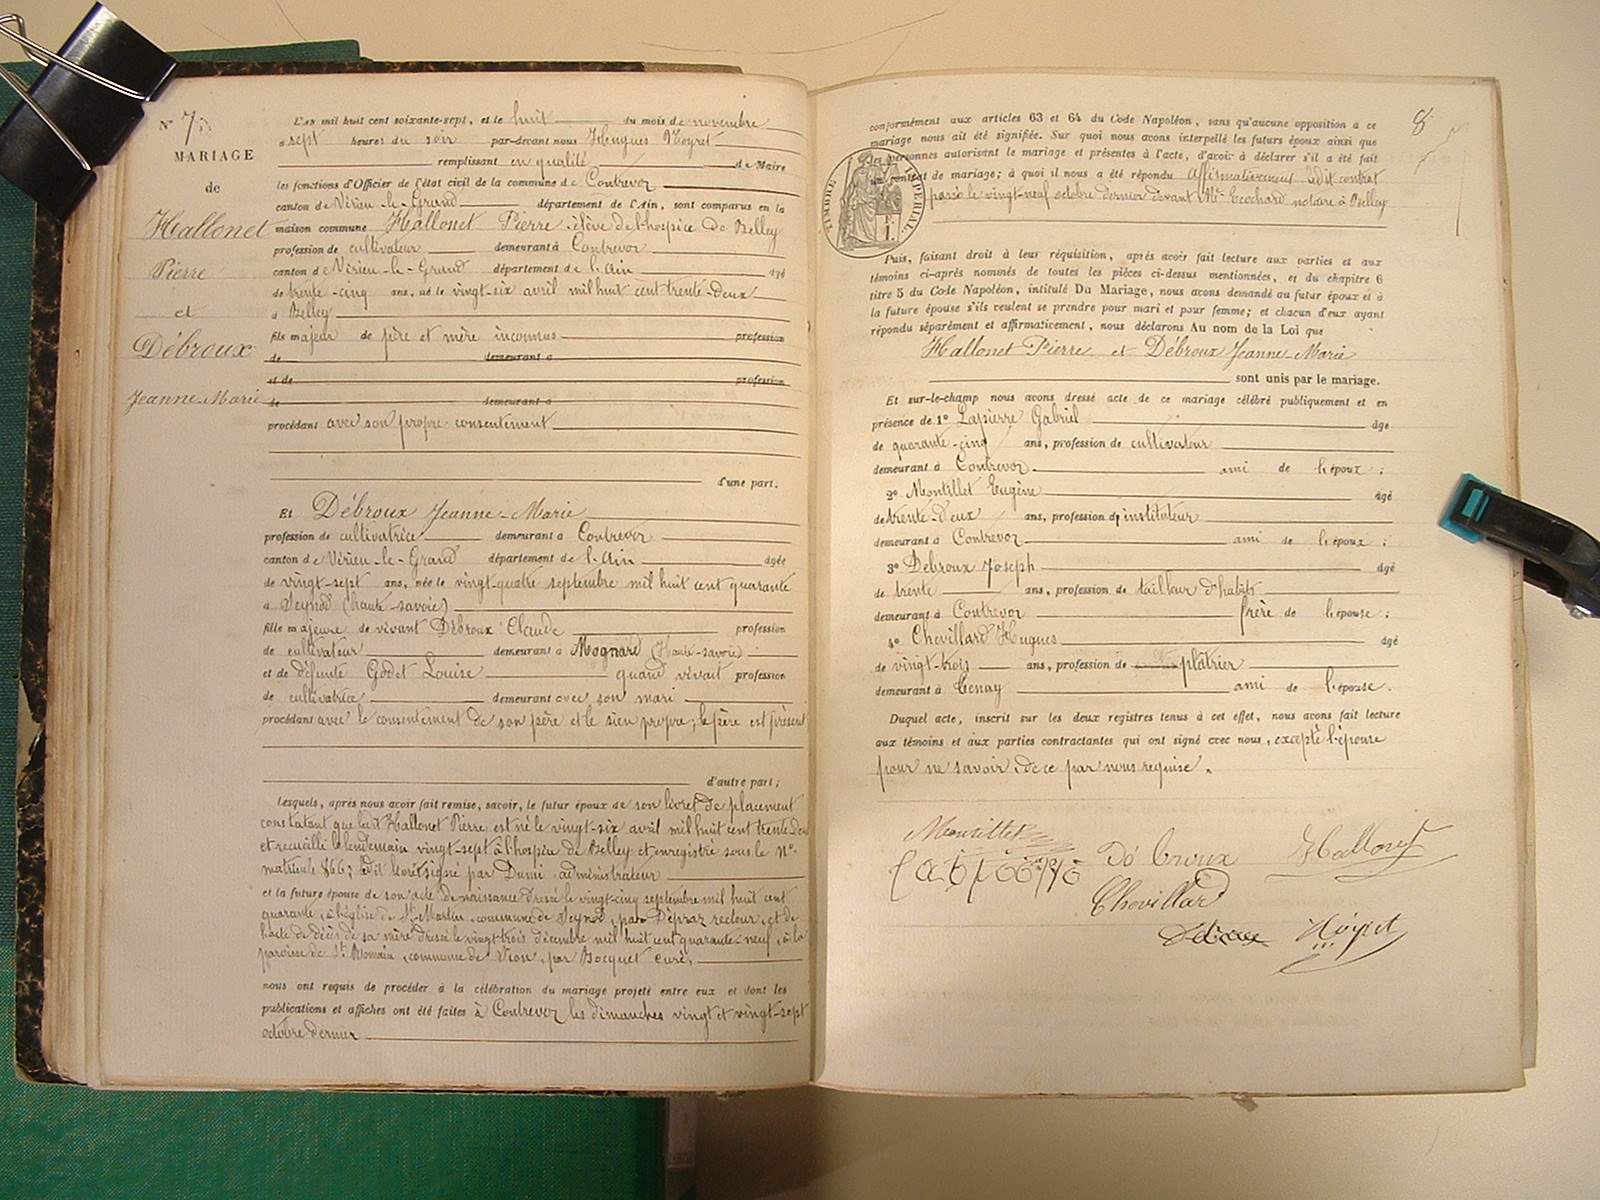 N° 7
MARIAGE
de
Hallonet
Pierre
et
Débroux
Jeanne-Marie
L'an mil huit cent soixante-sept, et le huit du mois de novembre
a sept heures du soir par-devant nous Hugues Noyret
remplissant en qualité de Maire
les fonctions d'Officier de l'état civil de la commune de Contrevoz
canton de Virieu-le-Grand département de l'Ain, sont comparus en la
maison commune Hallonet Pierre élève de l'hospice de Belley
profession de cultivateur demeurant à Contrevoz
canton de Virieu-le-Grand département de l'Ain âgé
de trente-cinq ans, né le vingt-six avril mil huit cent trente-deux
à Belley
fils majeur de père et mère inconnus profession
de demeurant à
et de profession
de demeurant à
procédant avec son propre consentement
d'une part;
Et Débroux Jeanne-Marie
profession de cultivatrice demeurant à Contrevoz
canton de Virieu-le-Grand département de l'Ain âgée
de vingt-sept ans, née le vingt-quatre septembre mil huit cent quarante
à Seynod (haute-savoie)
fille majeure de vivant Débroux Claude profession
de cultivateur demeurant à Mognard (Haute-savoie)
et de défunte Godet Louise quand vivait profession
de cultivatrice demeurant avec son mari
procédant avec le consentement de son père et le sien propre; le père est présent
d'autre part;
Lesquels, après nous avoir fait remise, savoir, le futur époux de son livret de placement
constatant que ledit Hallonet Pierre est né le vingt-six avril mil huit cent trente deux
et recueilli le lendemain vingt-sept à l'hospice de Belley et enregistré sous le N°
matricule 866; ledit livret signé par Dumi administrateur
et la future épouse de son acte de naissance dressé le vingt-cinq septembre mil huit cent
quarante, à l'église de St Martin, commune de Seynod, par Dépraz recteur, et de
l'acte de décès de sa mère dressé le vingt-trois décembre mil huit cent quarante-neuf, à la
paroisse de St Romain, commune de Sion, par Bocquet curé,
nous ont requis de procéder à la célébration du mariage projeté entre eux et dont les
publications et affiches ont été faites à Contrevoz les dimanches vingt et vingt-sept
octobre dernier
8
TIMBRE IMPÉRIAL
1 F.
conformément aux articles 63 et 64 du Code Napoléon, sans qu'aucune opposition à ce
mariage nous ait été signifiée. Sur quoi nous avons interpellé les futurs époux ainsi que
les personnes autorisant le mariage et présentes à l'acte, d'avoir à déclarer s'il a été fait
contrat de mariage; à quoi il nous a été répondu affirmativement ledit contrat
passé le vingt-neuf octobre dernier devant Me Cochard notaire à Belley
Puis, faisant droit à leur réquisition, après avoir fait lecture aux parties et aux
témoins ci-après nommés de toutes les pièces ci-dessus mentionnées, et du chapitre 6
titre 5 du Code Napoléon, intitulé Du Mariage, nous avons demandé au futur époux et à
la future épouse s'ils veulent se prendre pour mari et pour femme; et chacun d'eux ayant
répondu séparément et affirmativement, nous déclarons Au nom de la Loi que
Hallonet Pierre et Débroux Jeanne-Marie
sont unis par le mariage.
Et sur-le-champ nous avons dressé acte de ce mariage célébré publiquement et en
présence de 1° Lapierre Gabriel âgé
de quarante-cinq ans, profession de cultivateur
demeurant à Contrevoz ami de l'époux;
2° Montillet Eugène âgé
de trente-deux ans, profession d'instituteur
demeurant à Contrevoz ami de l'époux;
3° Débroux Joseph âgé
de trente ans, profession de tailleur d'habits
demeurant à Contrevoz frère de l'épouse;
4° Chevillard Hugues âgé
de vingt-trois ans, profession de plâtrier
demeurant à Tenay ami de l'épouse.
Duquel acte, inscrit sur les deux registres tenus à cet effet, nous avons fait lecture
aux témoins et aux parties contractantes qui ont signé avec nous, excepté l'épouse
pour ne savoir, de ce par nous requise.
Montillet
Dé broux Hallonet
Chevillard
Noyret